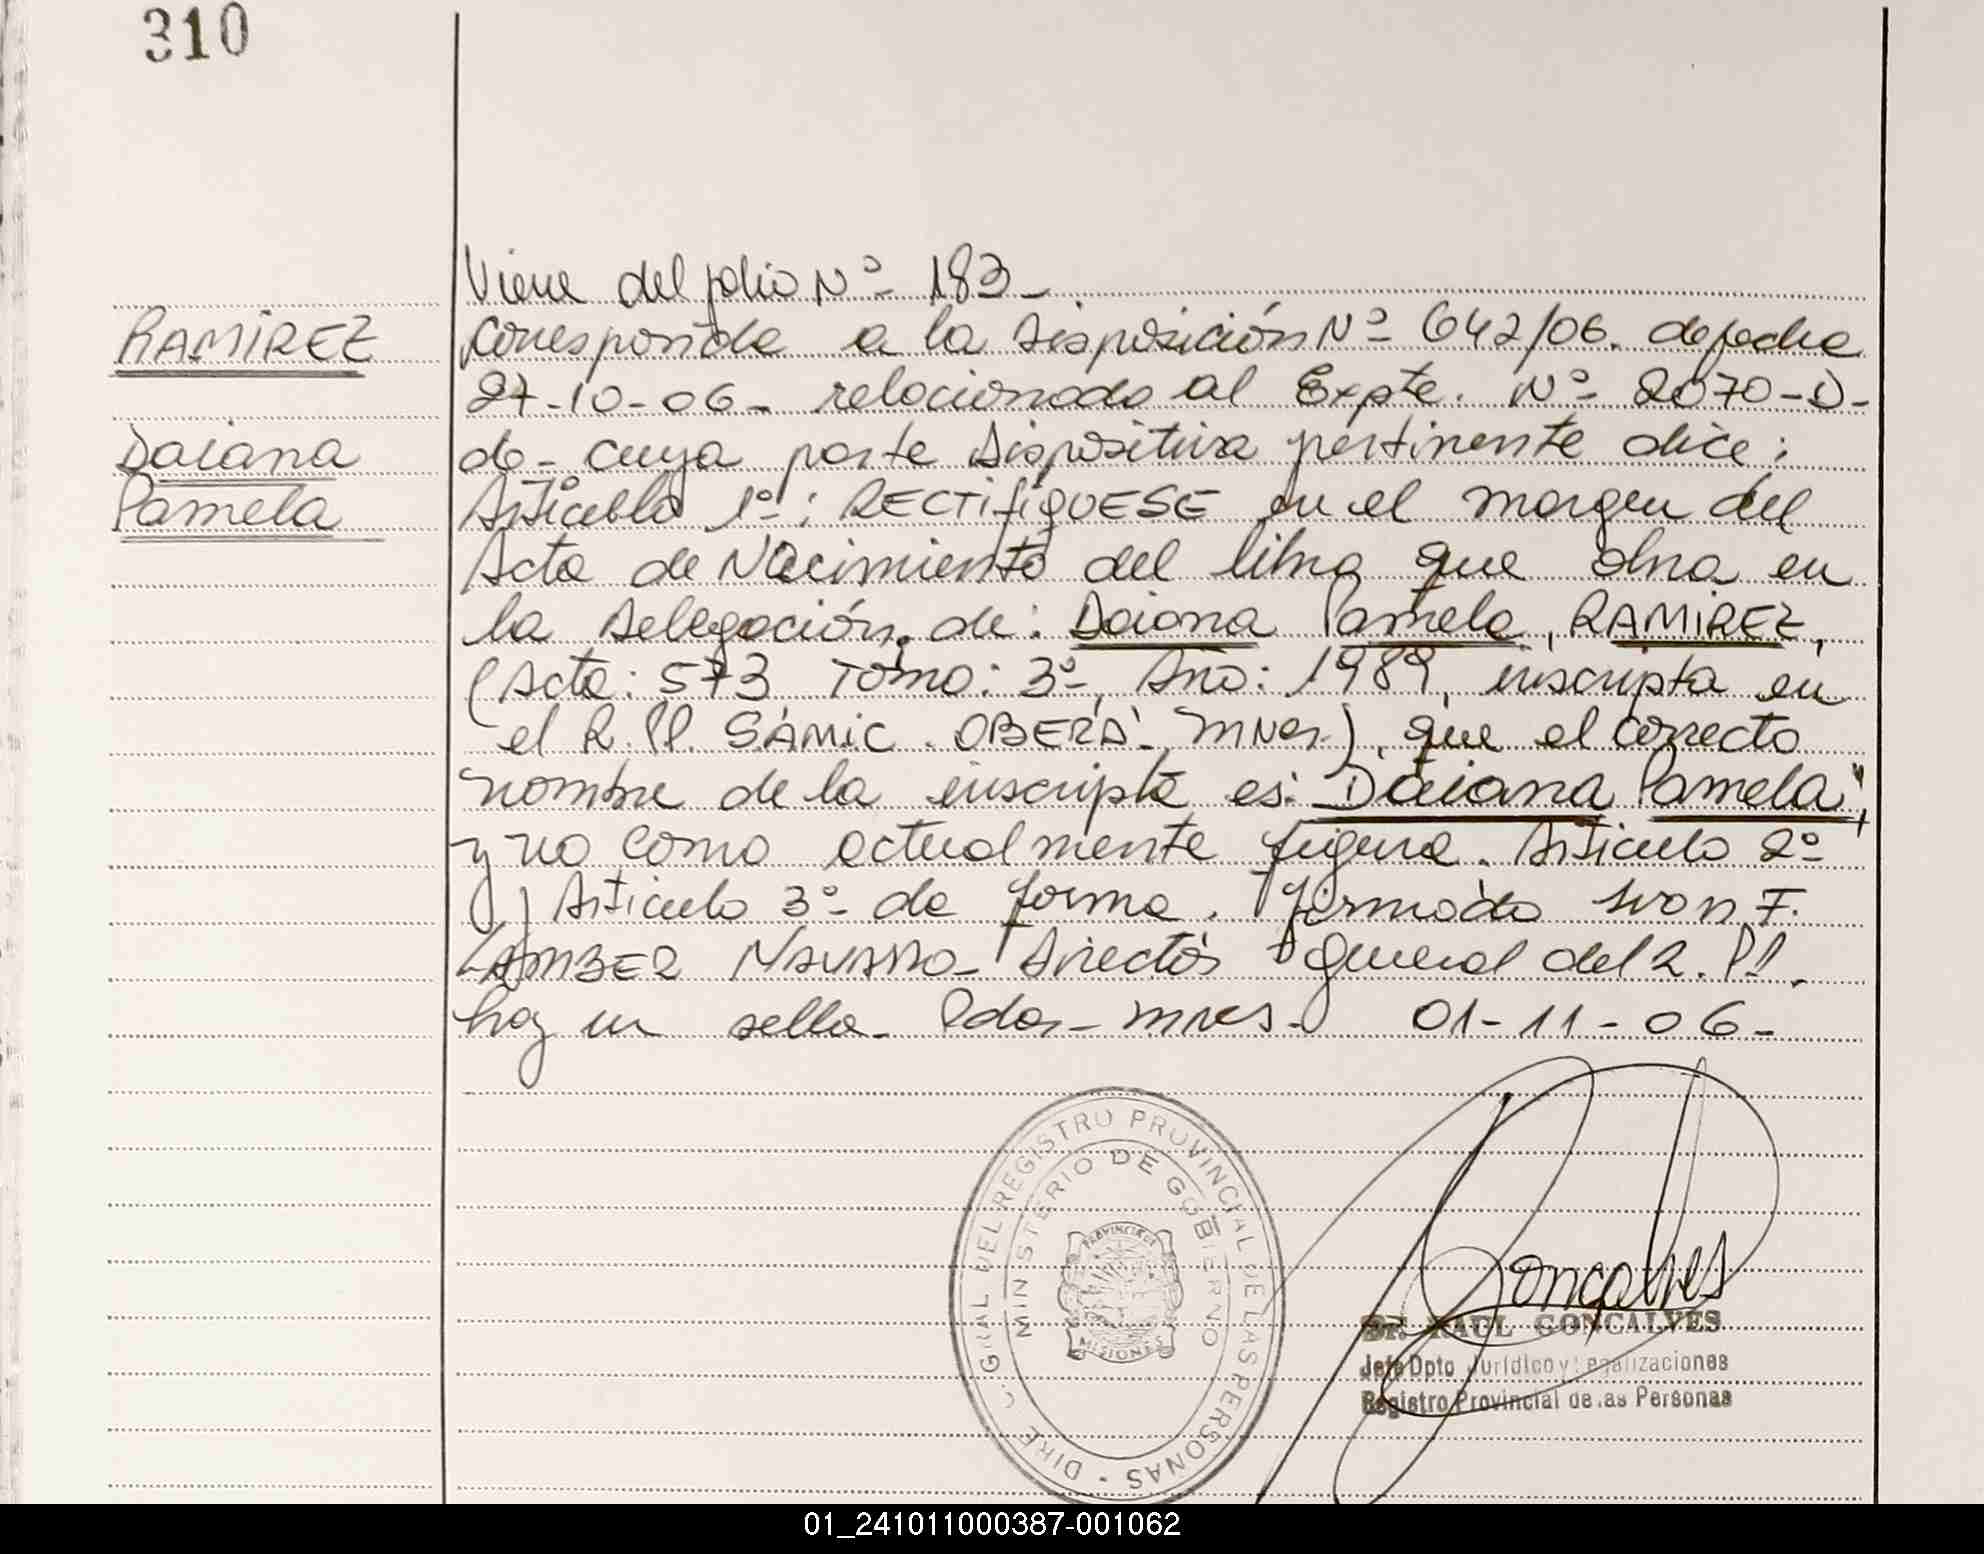 310
Viene del folio Nº 183-
RAMIREZ
Corresponde a la Disposición Nº 642/06. de fecha
27-10-06- relacionado al Expte. Nº 2070-D-
Daiana
de- cuya parte Dispositiva pertinente dice:
Pamela
Articulo 1º: RECTIFIQUESE en el margen del
Acta de Nacimiento del libro que obra en
la Delegación. de: Daiana Pamela, RAMIREZ,
(Acta: 573 Tomo: 3º, Año: 1989, inscripta en
el R.PP. SAMIC. OBERÁ- MNes.), que el correcto
nombre de la inscripta es: Daiana Pamela",
y no como actualmente figura. Articulo 2º
y Articulo 3º de forma. Firmado Ivon F.
LAMBER Navarro- Director General del R. PP.
hay un sello- Pdas- Mnes- 01-11-06-
DIREC. GRAL DEL REGISTRO PROVINCIAL DE LAS PERSONAS -
MINISTERIO DE GOBIERNO
PROVINCIA DE
MISIONES
Goncalves
Dr. RAUL GONCALVES
Jefe Dpto Jurídico y Legalizaciones
Registro Provincial de las Personas
01_241011000387-001062